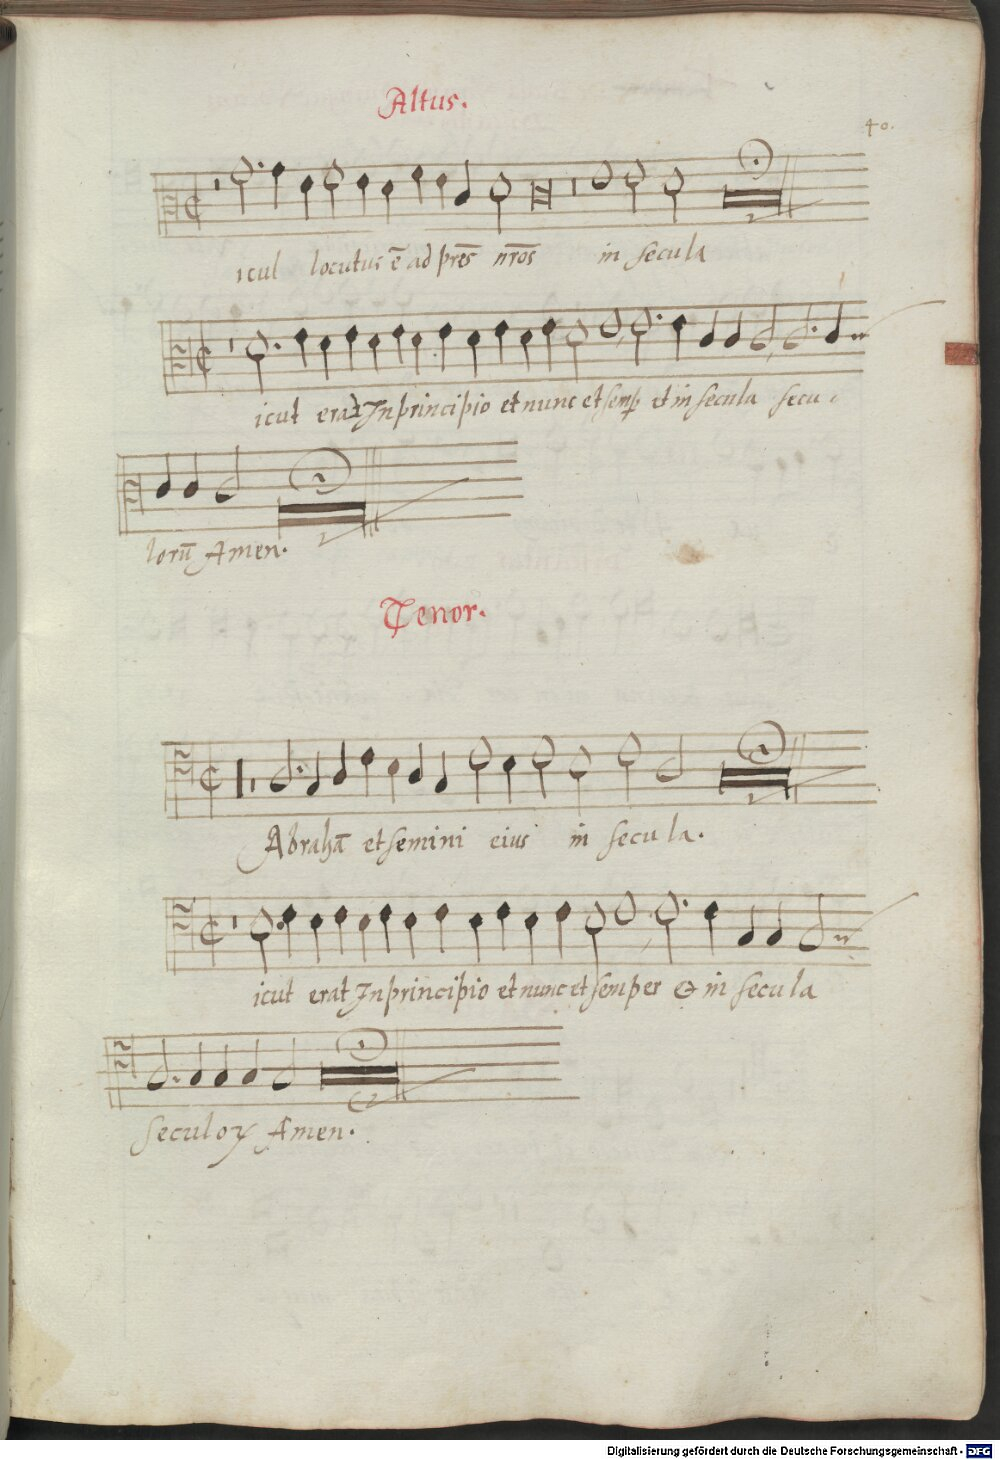 Altus.
40.
icut locutus ē ad p̄res nr̄os in secula
icut erat In principio et nunc et semp et in secula secu
lorū Amen.
Tenor.
Abrahā et semini eius in secula.
icut erat In principio et nunc et semper & in secula
seculoꝝ Amen.
Digitalisierung gefördert durch die Deutsche Forschungsgemeinschaft - DFG